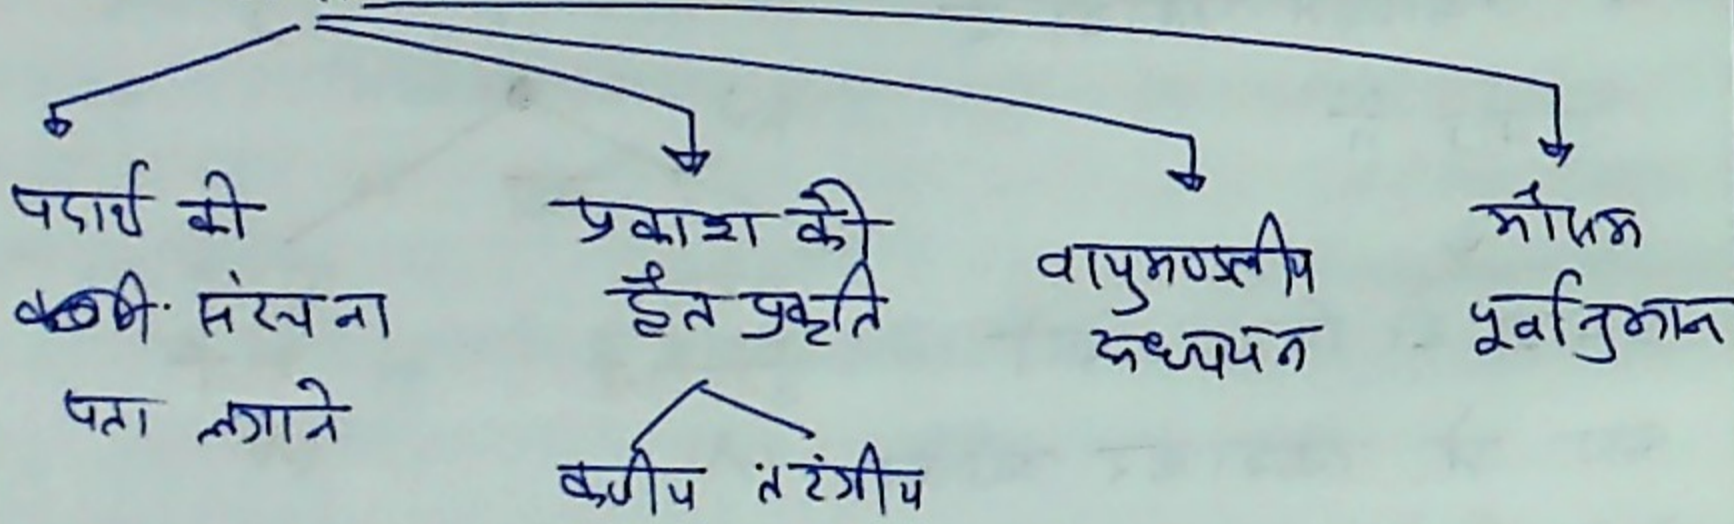 पदार्थ की
संरचना
पता लगाने
प्रकाश की
द्वैत प्रकृति
कणीय तरंगीय
वायुमण्डलीय
अध्ययन
मौसम
पूर्वानुमान